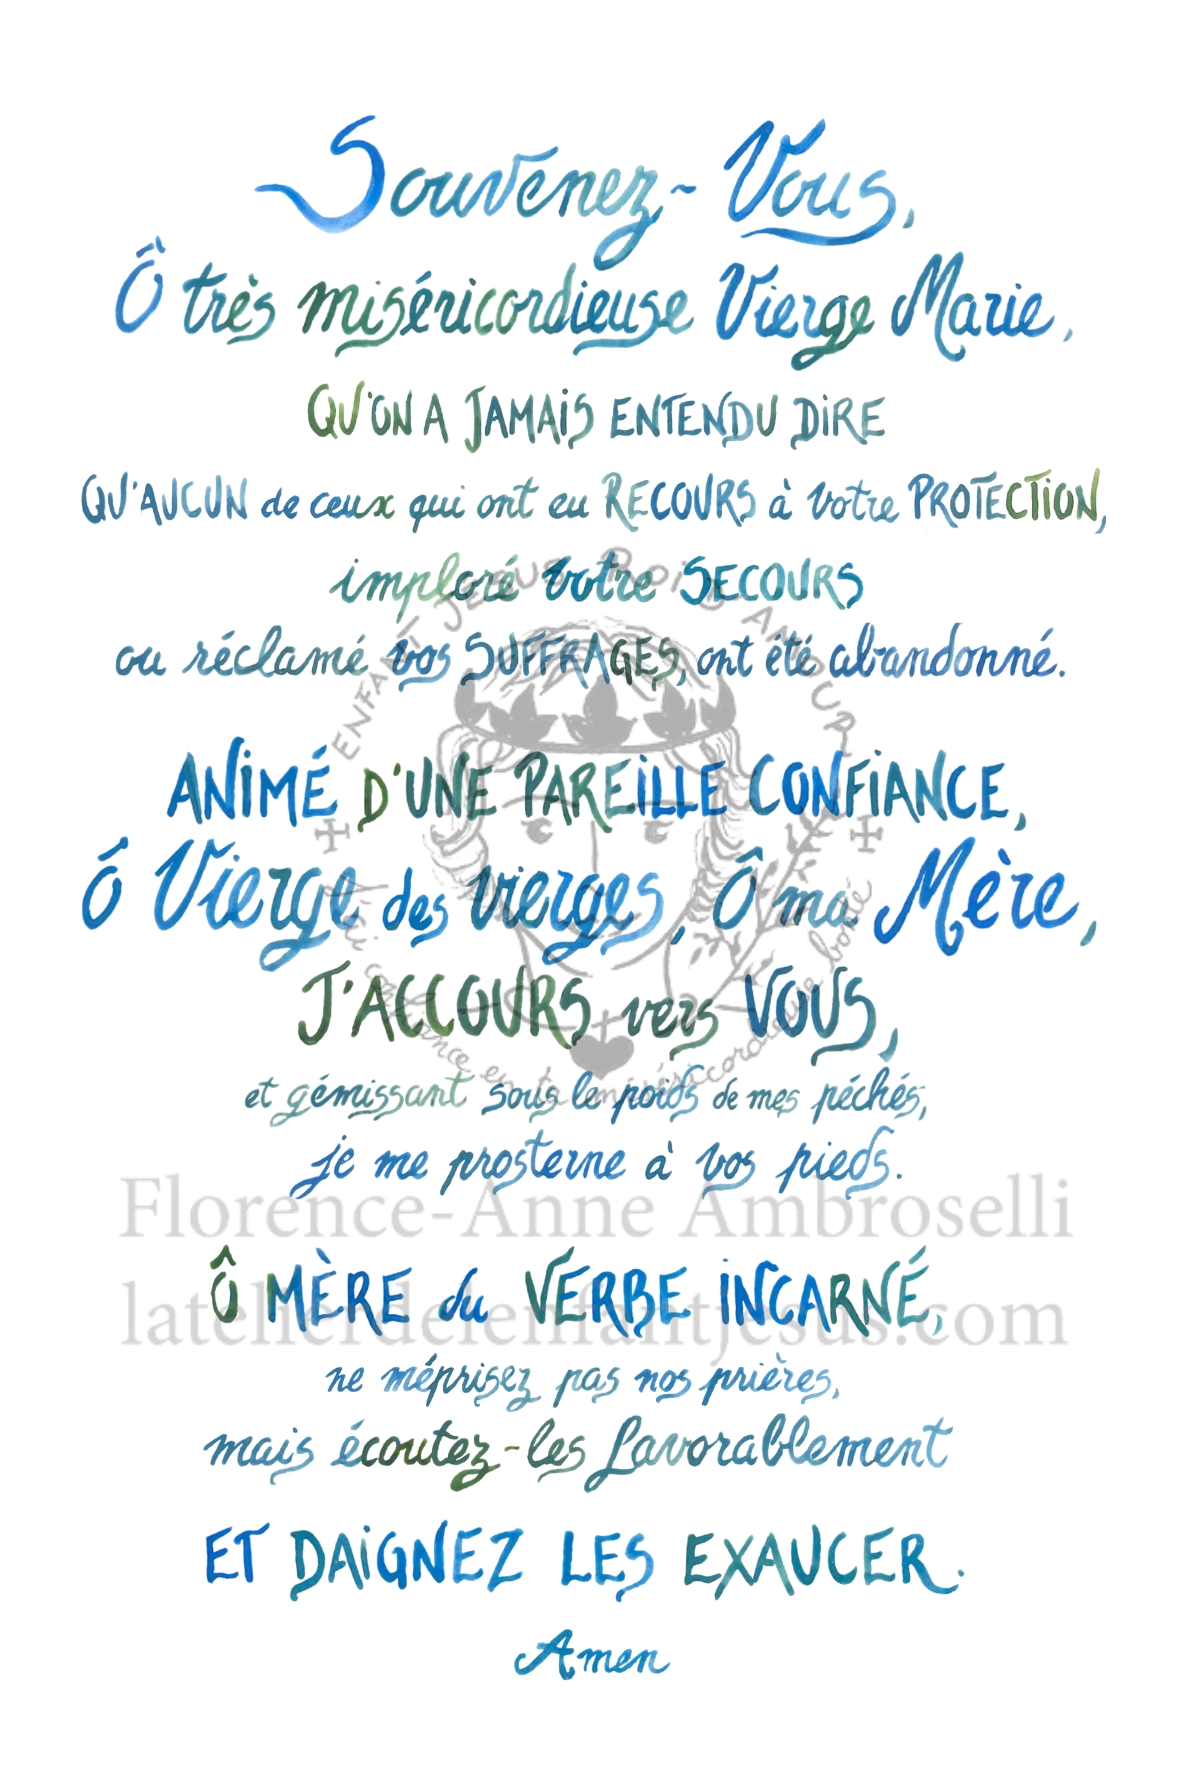 Souvenez-Vous,
Ô très miséricordieuse Vierge Marie,
QU'ON A JAMAIS ENTENDU DIRE
QU'AUCUN de ceux qui ont eu RECOURS à votre PROTECTION,
imploré votre SECOURS
ou réclamé vos SUFFRAGES, ont été abandonné.
ANIMÉ D'UNE PAREILLE CONFIANCE,
Ô Vierge des vierges, Ô ma Mère,
J'ACCOURS vers VOUS,
et gémissant sous le poids de mes péchés,
je me prosterne à vos pieds.
Ô MÈRE du VERBE INCARNÉ,
ne méprisez pas nos prières,
mais écoutez-les favorablement
ET DAIGNEZ LES EXAUCER.
Amen
ENFANT JESUS ROI D'AMOUR
j'ai confiance en ta miséricordieuse bonté
Florence-Anne Ambroselli
latelierdelenfantjesus.com